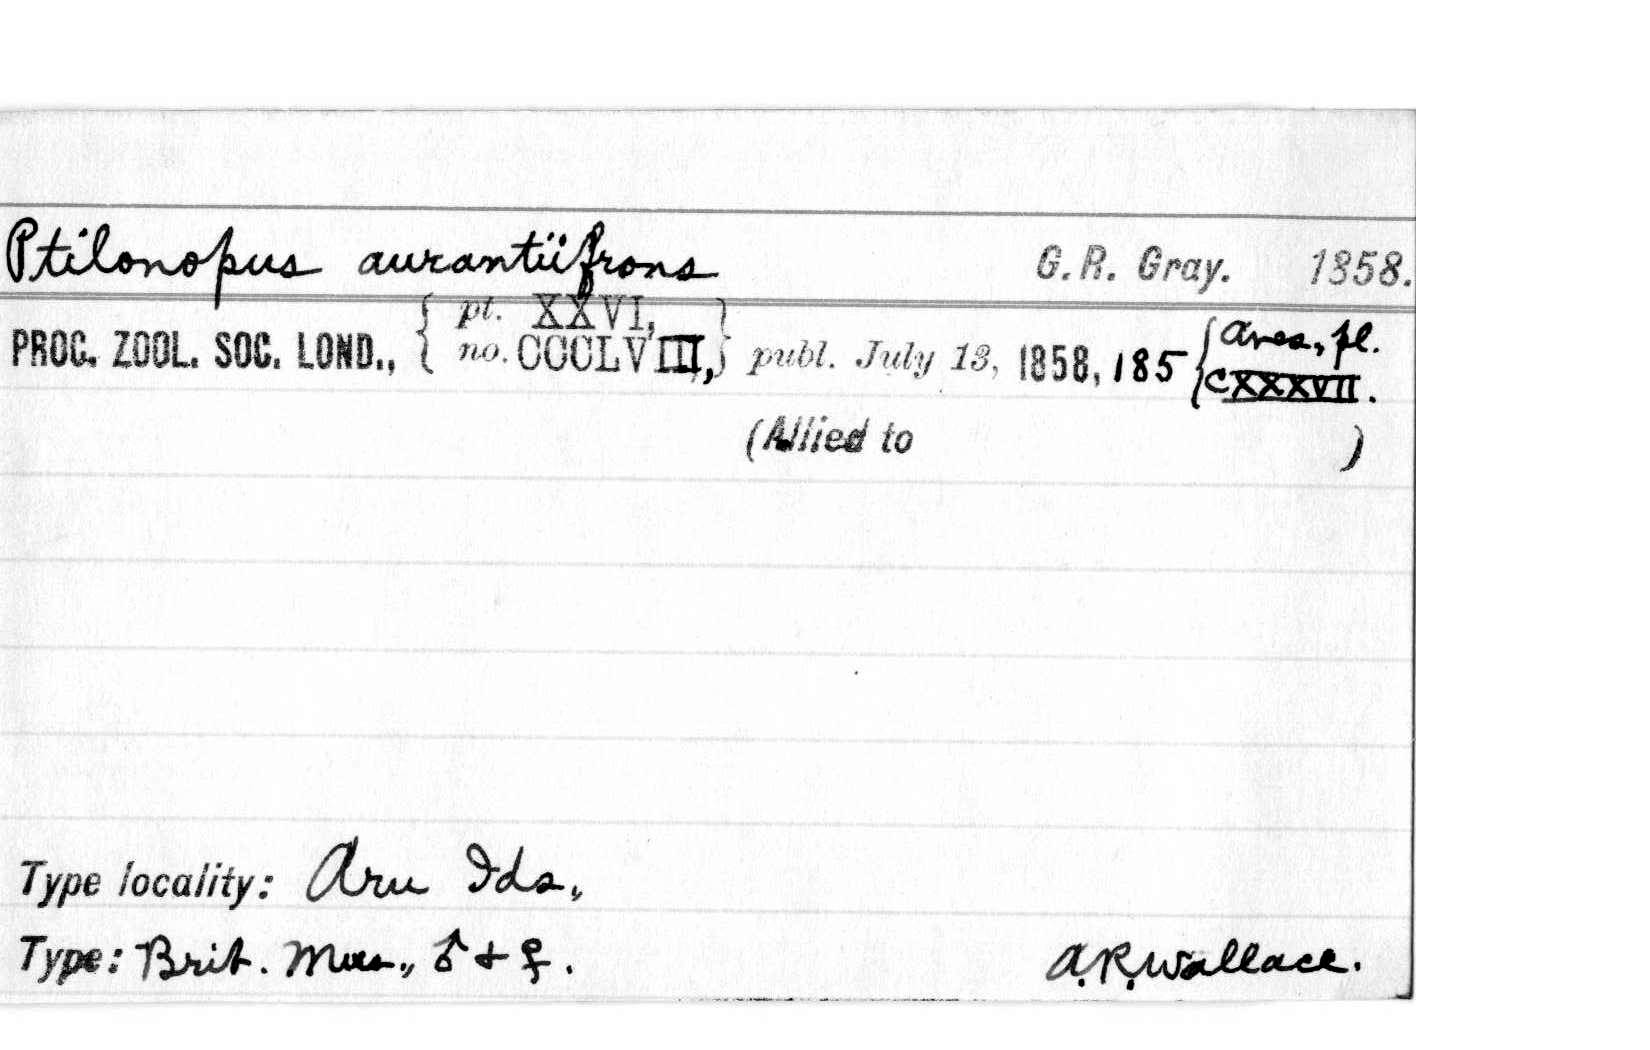 Ptilonopus aurantiifrons G. R. Gray. 1858.
PROC. ZOOL. SOC. LOND., { pt. XXVI, no. CCCLVIII, } publ. July 13, 1858, 185 { Aves, pl. CXXXVII.
(Allied to )
Type locality: Aru Ids.,
Type: Brit. Mus., ♂ + ♀. A. R. Wallace.